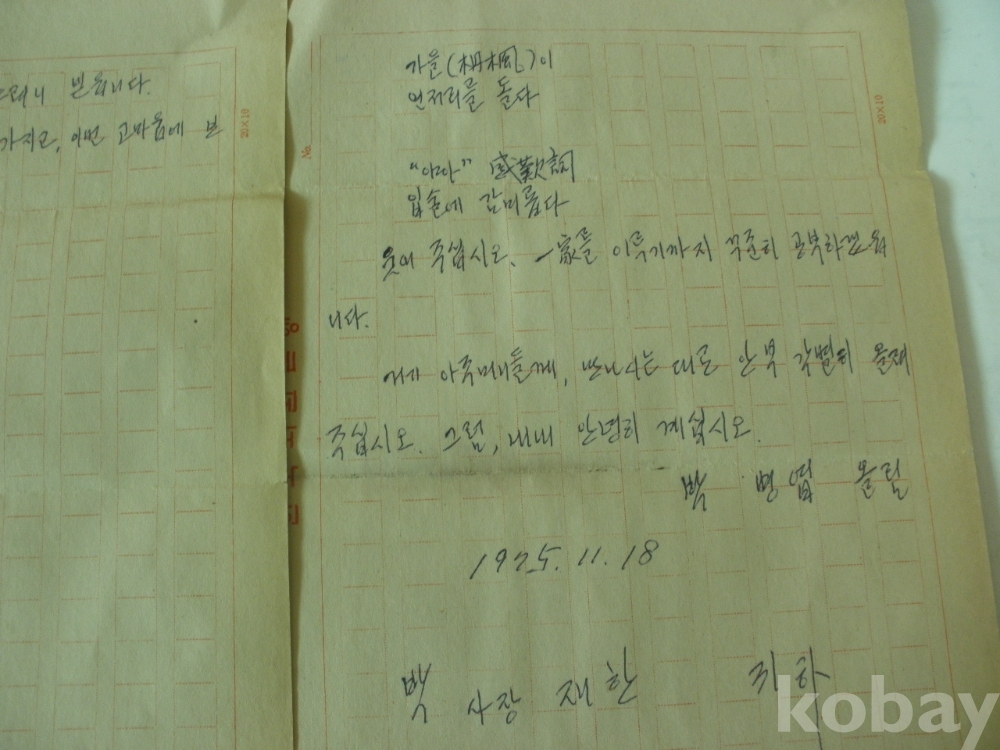 빕니다.
가지고, 이번 고마움에 보
20×10
가을(丹楓)이
언저리를 돌다
"아아" 感歎詞
입술에 감미롭다
웃어 주십시오. 一家를 이루기까지 꾸준히 공부하겠읍
니다.
거기 아주머니들께, 만나시는 대로 안부 각별히 올려
주십시오. 그럼, 내내 안녕히 계십시오.
박 병엽 올림
1975. 11. 18
박 사장 재한 귀하
No
20×10
kobay